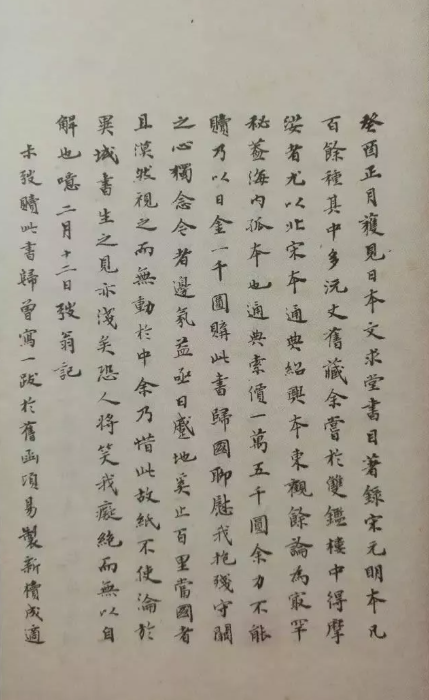 癸酉正月獲見日本文求堂書目著錄宋元明本凡
百餘種其中多沅丈舊藏余嘗於雙鑑樓中得摩
娑者尤以北宋本通典紹興本東觀餘論為冣罕
秘蓋海内孤本也通典索價一萬五千圓余力不能
贖乃以日金一千圓購此書歸國聊慰我抱殘守闕
之心獨念今者邊氛益亟日蹙地奚止百里當國者
且漠然視之而無動於中余乃惜此故紙不使淪於
異域書生之見亦淺矣恐人將笑我癡絕而無以自
解也噫二月十二日弢翁記
未弢贖此書歸曾寫一跋於舊函頃易製新櫝成適